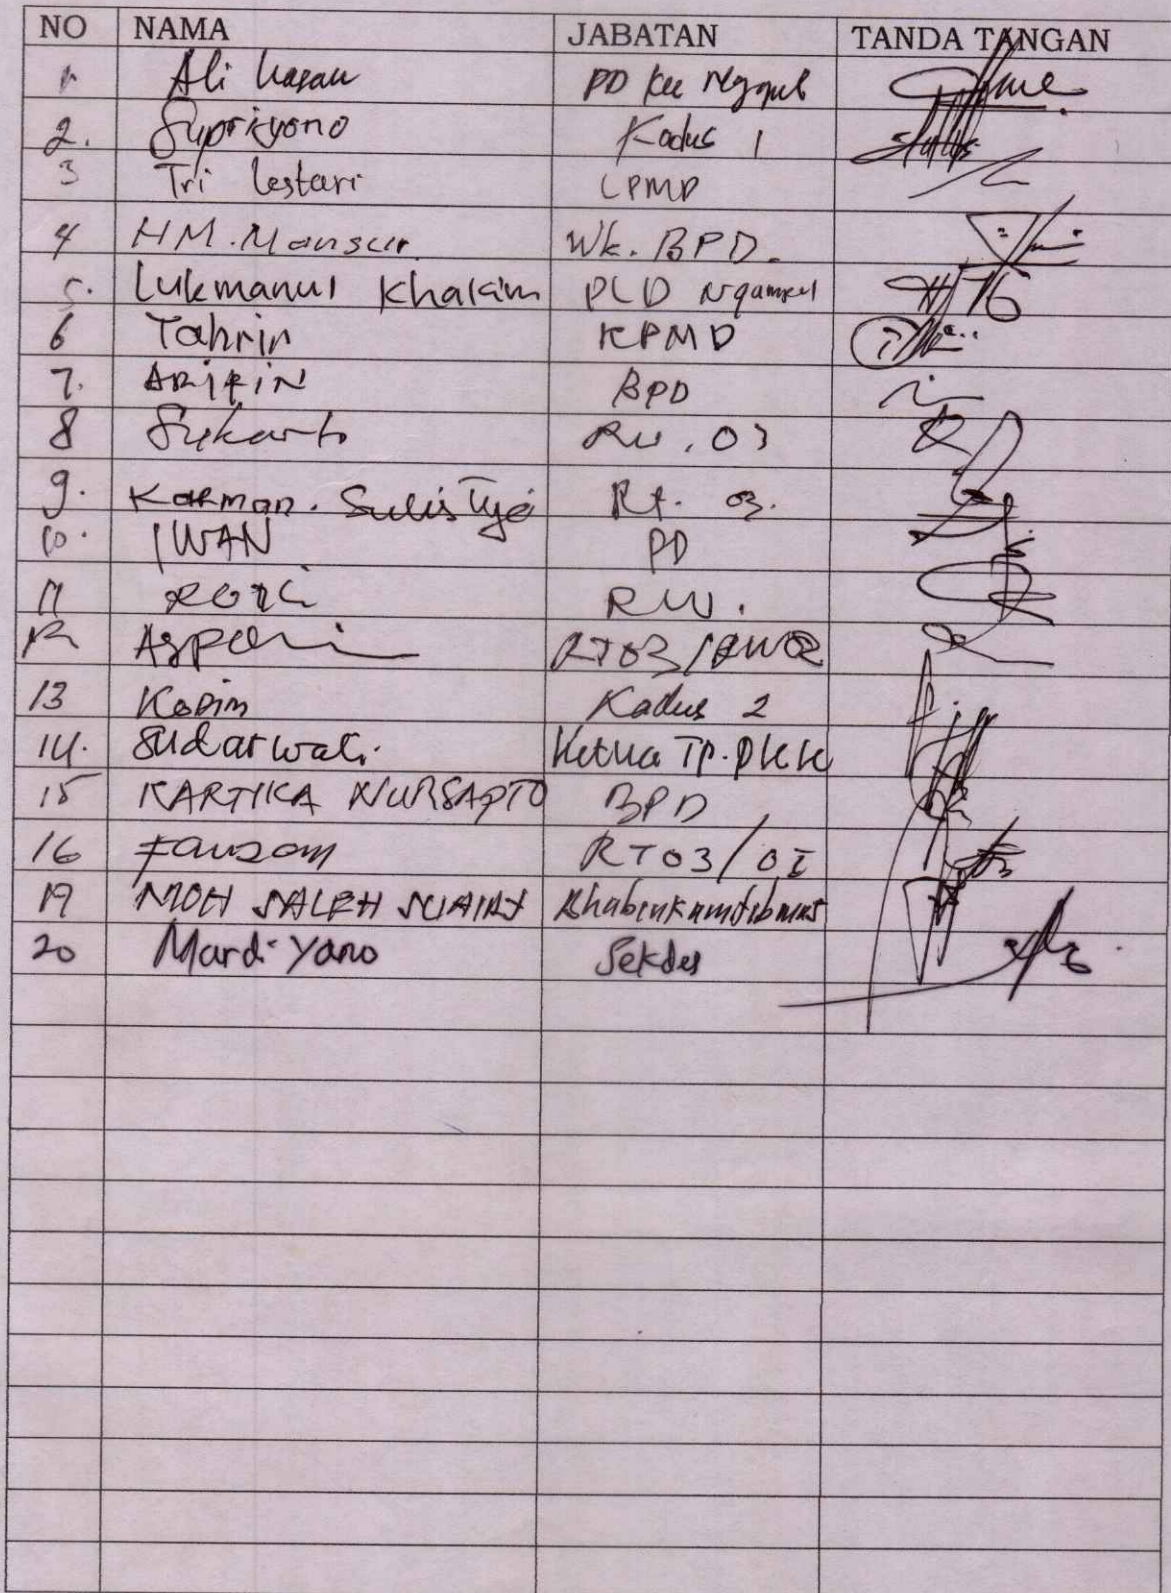 NO NAMA JABATAN TANDA TANGAN
1 Ali Hasan PD Kec
2. Supriyono Kadus 1
3 Tri Lestari LPMD
4 HM. Mansur. Wk. BPD.
5. Lukmanul Khakim PLD Ngampel
6 Tahrir KPMD
7. ARIFIN BPD
8 Sukarto RW. 03
9. Karman. Sulis Tyo Rt. 03.
10. IWAN PD
11 RW.
12 Aspari RT03/RW02
13 Kasim Kadus 2
14. Sudarwati. Ketua Tp. PKK
15 KARTIKA NURSAPTO BPD
16 Fauzan RT03/01
19 MOH SALEH Bhabinkamtibmas
20 Mardiyono Sekdes